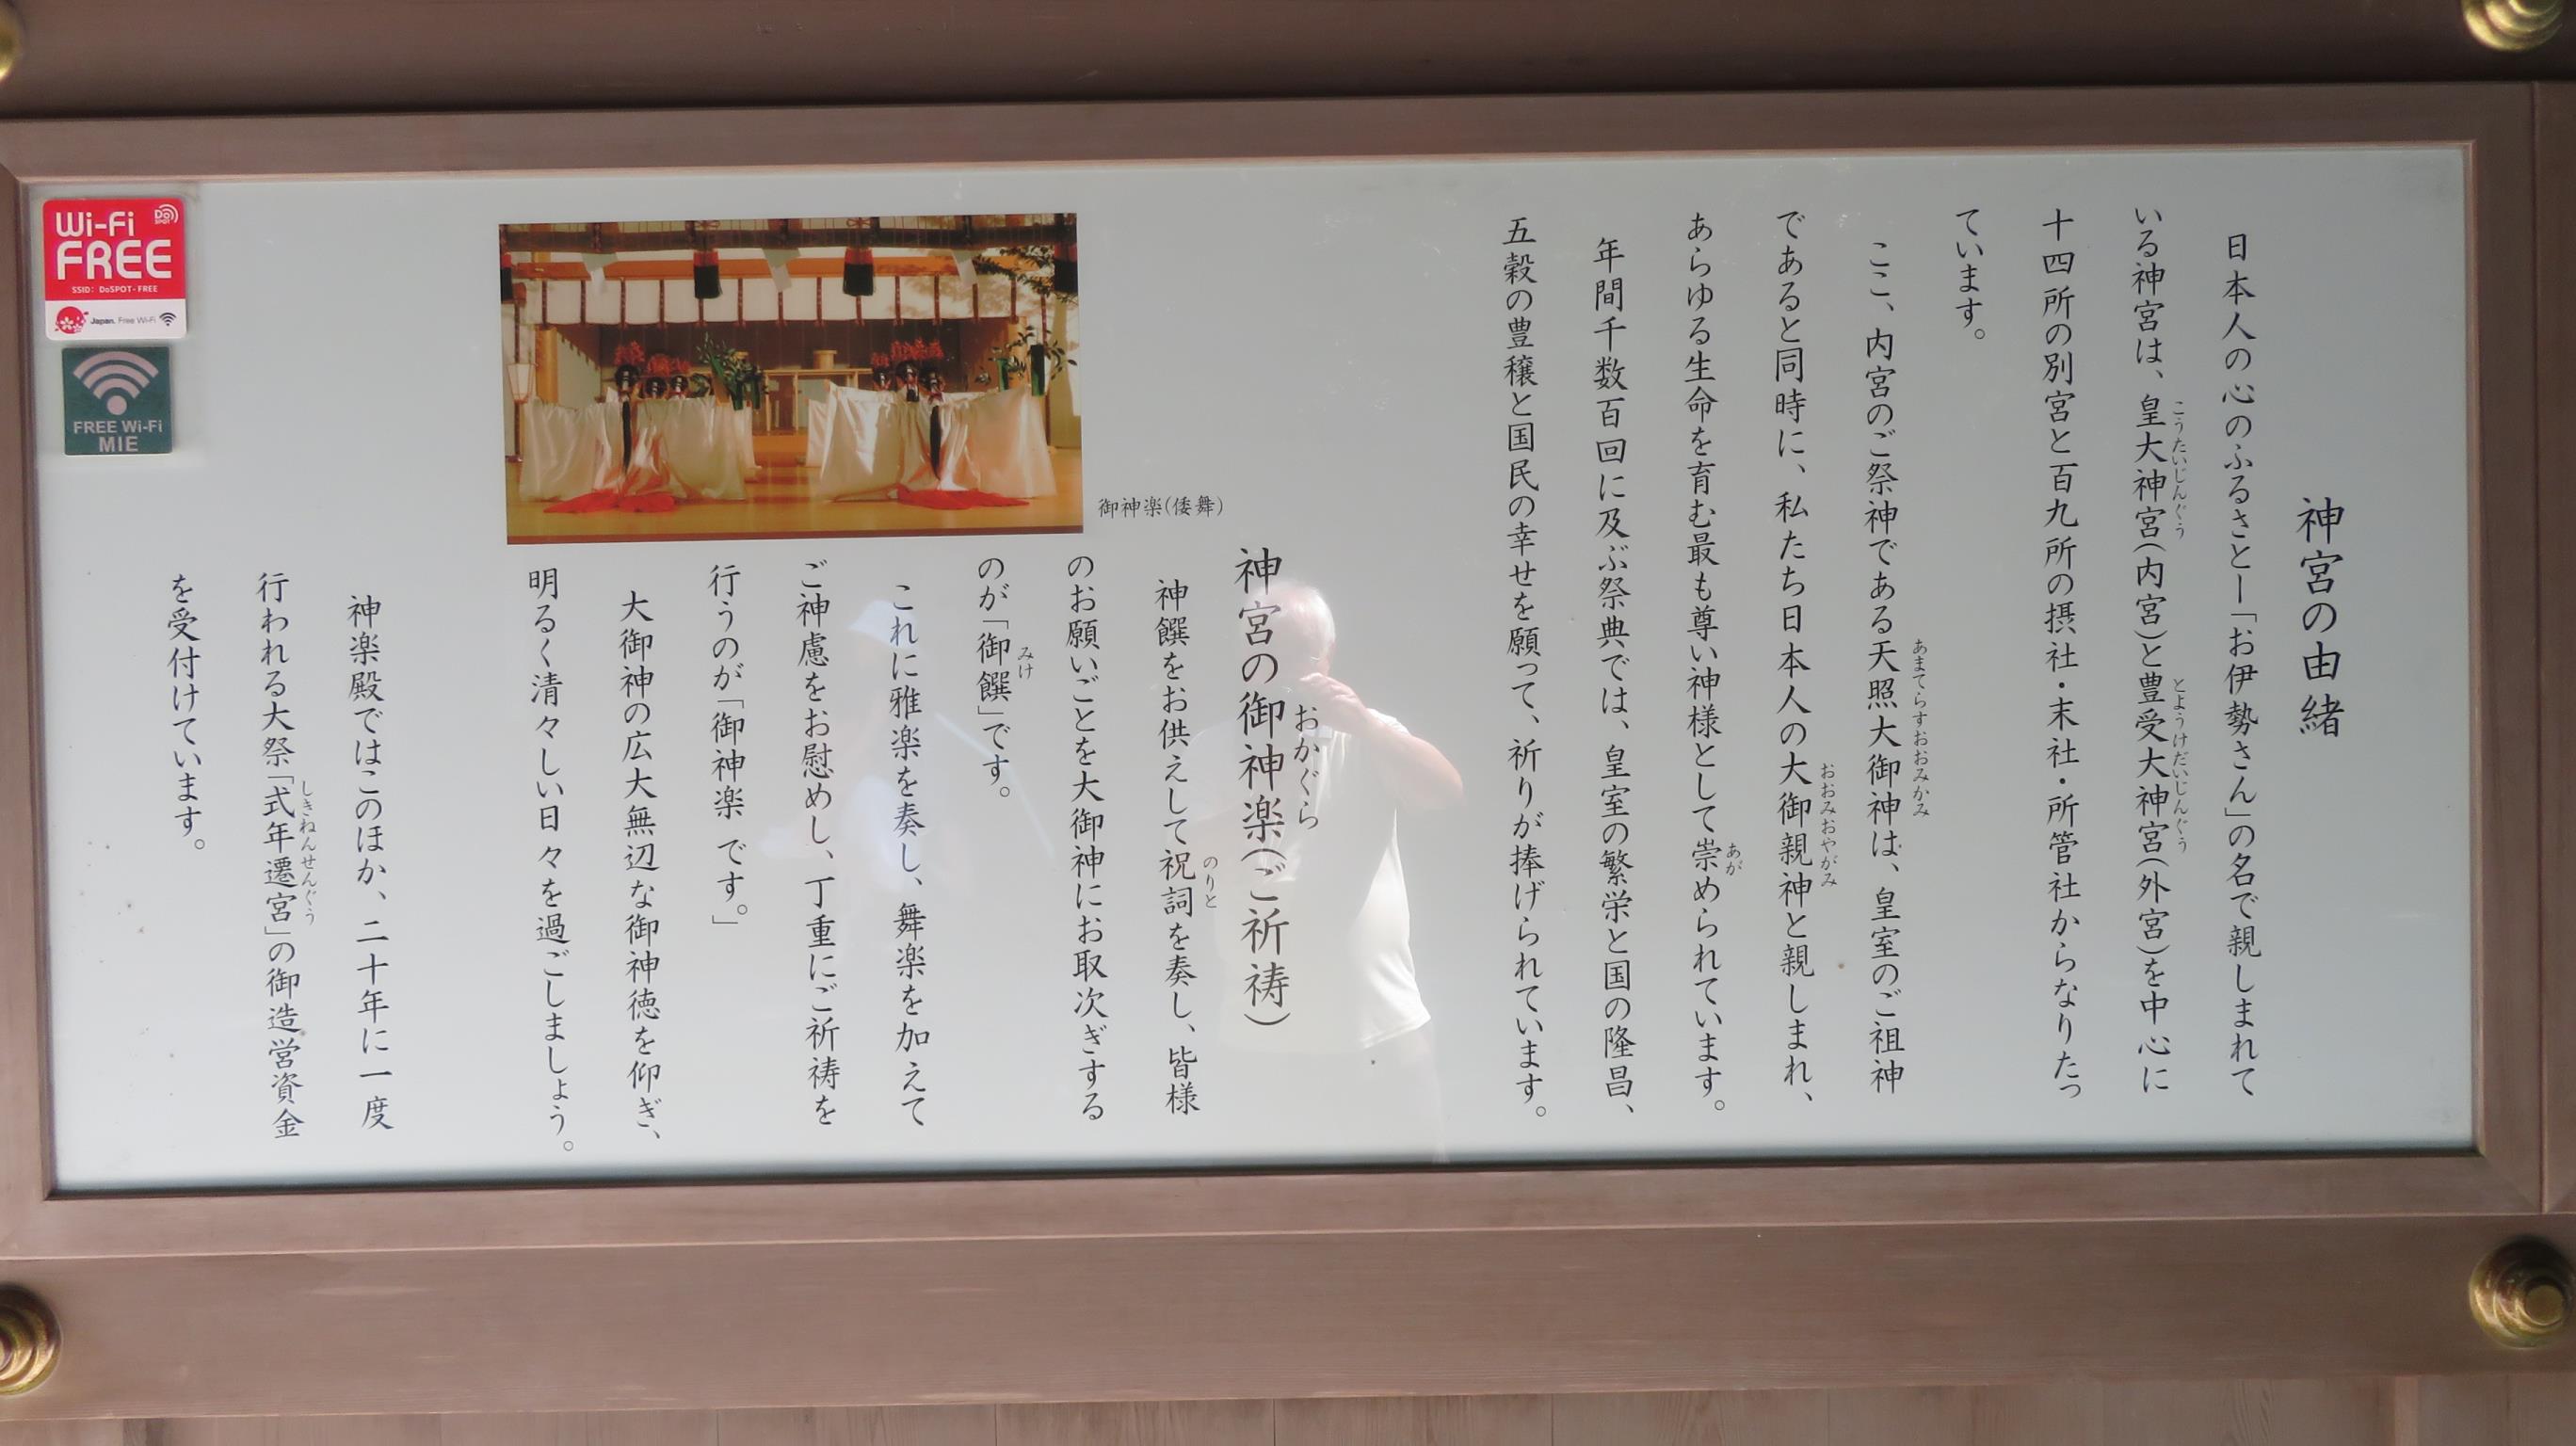 神宮の由緒
日本人の心のふるさと―「お伊勢さん」の名で親しまれて
いる神宮は、皇大神宮(内宮)と豊受大神宮(外宮)を中心に
こうたいじんぐう
とようけだいじんぐう
十四所の別宮と百九所の摂社・末社・所管社からなりたっ
ています。
ここ、内宮のご祭神である天照大御神は、皇室のご祖神
あまてらすおおみかみ
であると同時に、私たち日本人の大御親神と親しまれ、
おおみおやがみ
あらゆる生命を育む最も尊い神様として崇められています。
あが
年間千数百回に及ぶ祭典では、皇室の繁栄と国の隆昌、
五穀の豊穣と国民の幸せを願って、祈りが捧げられています。
神宮の御神楽(ご祈祷)
おかぐら
神饌をお供えして祝詞を奏し、皆様
のりと
のお願いごとを大御神にお取次ぎする
のが「御饌」です。
みけ
これに雅楽を奏し、舞楽を加えて
ご神慮をお慰めし、丁重にご祈祷を
行うのが「御神楽 です。」
大御神の広大無辺な御神徳を仰ぎ、
明るく清々しい日々を過ごしましょう。
神楽殿ではこのほか、二十年に一度
行われる大祭「式年遷宮」の御造営資金
しきねんせんぐう
を受付けています。
御神楽(倭舞)
Wi-Fi
DoSPOT
FREE
SSID: DoSPOT-FREE
Japan. Free Wi-Fi
FREE Wi-Fi
MIE